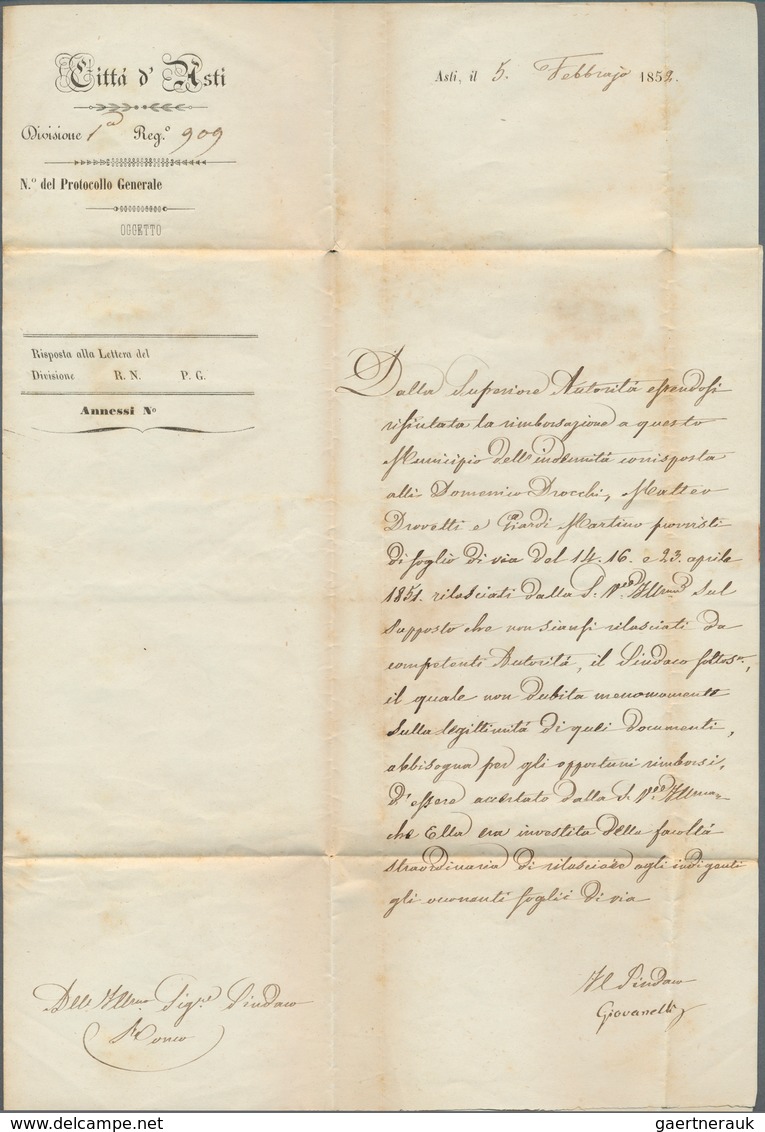 Città d' Asti
Asti, il 5. Febbrajo 1852.
Divisione 1a Reg.° 909
N.° del Protocollo Generale
OGGETTO
Risposta alla Lettera del
Divisione R. N. P. G.
Annessi N°
Dalla Superiore Autorità essendosi
rifiutata la rimborsazione a questo
Municipio dell'indennità corrisposta
alli Domenico Drocchi, Matteo
Drovetti e Giardi Martino provvisti
di foglio di via del 14. 16. e 23. aprile
1851. rilasciati dalla S. V. Illma Sul
supposto che non siansi rilasciati da
competenti Autorità, il Sindaco sottos.,
il quale non dubita menomamente
sulla legittimità di quei documenti,
abbisogna per gli opportuni rimborsi,
d'essere accertato dalla S. V. Illma
che Ella era investita della facoltà
straordinaria di rilasciare agli indigenti
gli occorrenti foglii di via
Il Sindaco
Giovanelli
Illmo Sigre Sindaco
Ronco
gaertnerauk / delcampe.net